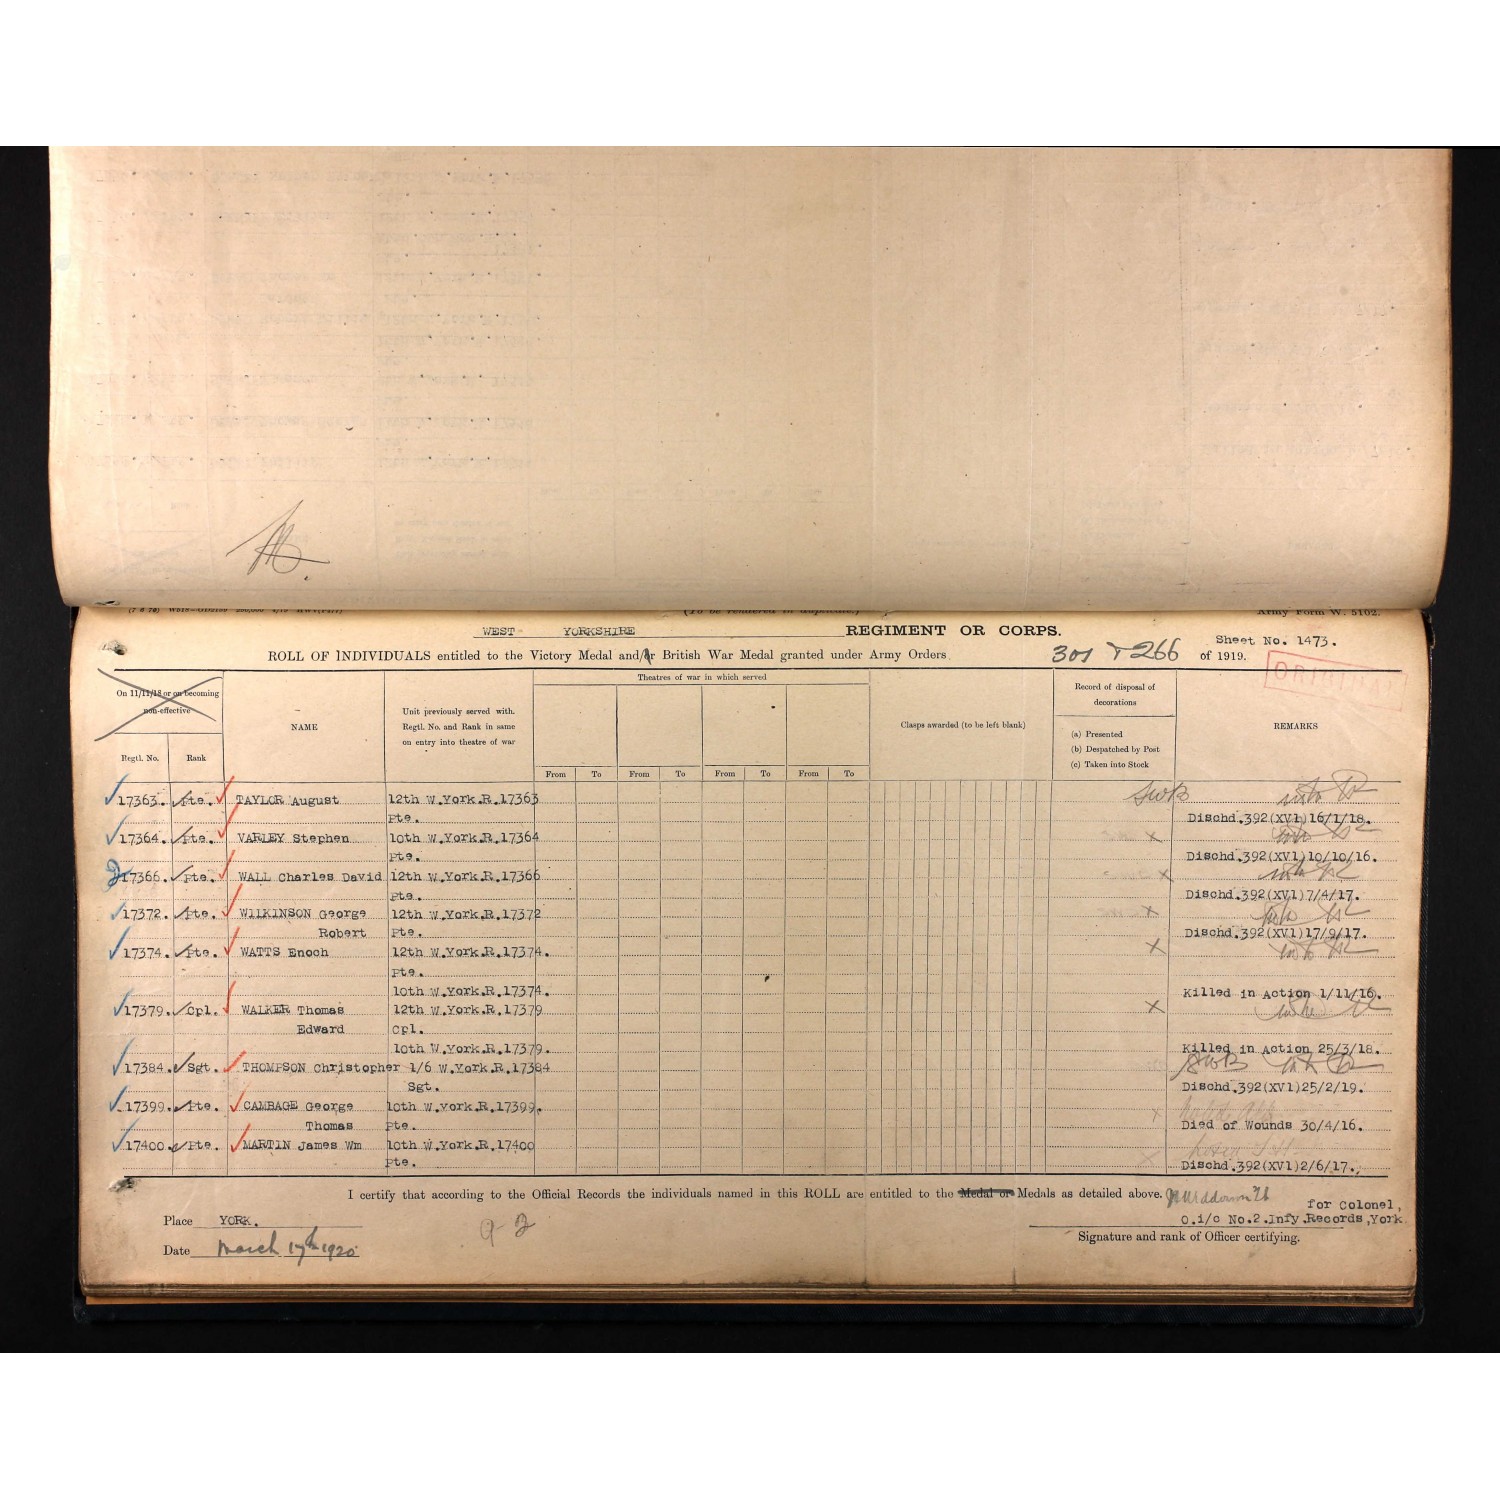 (To be rendered in duplicate.) Army Form W. 5102.
WEST YORKSHIRE REGIMENT OR CORPS. Sheet No. 1473.
ROLL OF INDIVIDUALS entitled to the Victory Medal and/or British War Medal granted under Army Orders 301 & 266 of 1919.
ORIGINAL
On 11/11/18 or on becoming non-effective
Regtl. No. Rank
NAME
Unit previously served with.
Regtl. No. and Rank in same
on entry into theatre of war
Theatres of war in which served
From To From To From To From To
Clasps awarded (to be left blank)
Record of disposal of
decorations
(a) Presented
(b) Despatched by Post
(c) Taken into Stock
REMARKS
17363. Pte. TAYLOR August 12th W.York.R.17363 SWB
Pte. Dischd.392(XVI)16/1/18.
17364. Pte. VARLEY Stephen 10th W.York.R.17364 X
Pte. Dischd.392(XVI)10/10/16.
17366. Pte. WALL Charles David 12th W.York.R.17366 X
Pte. Dischd.392(XVI)7/4/17.
17372. Pte. WILKINSON George 12th W.York.R.17372 X
Robert Pte. Dischd.392(XVI)17/9/17.
17374. Pte. WATTS Enoch 12th W.York.R.17374. X
Pte.
10th W.York.R.17374. Killed in Action 1/11/16.
17379. Cpl. WALKER Thomas 12th W.York.R.17379 X
Edward Cpl.
10th W.York.R.17379. Killed in Action 25/3/18.
17384. Sgt. THOMPSON Christopher 1/6 W.York.R.17384 SWB
Sgt. Dischd.392(XVI)25/2/19.
17399. Pte. CAMBAGE George 10th W.York.R.17399. X
Thomas Pte. Died of Wounds 30/4/16.
17400. Pte. MARTIN James Wm 10th W.York.R.17400 X
Pte. Dischd.392(XVI)2/6/17.
I certify that according to the Official Records the individuals named in this ROLL are entitled to the Medal or Medals as detailed above.
for Colonel,
Place YORK. O.i/c No.2.Infy.Records,York
Date March 17th 1920 Signature and rank of Officer certifying.